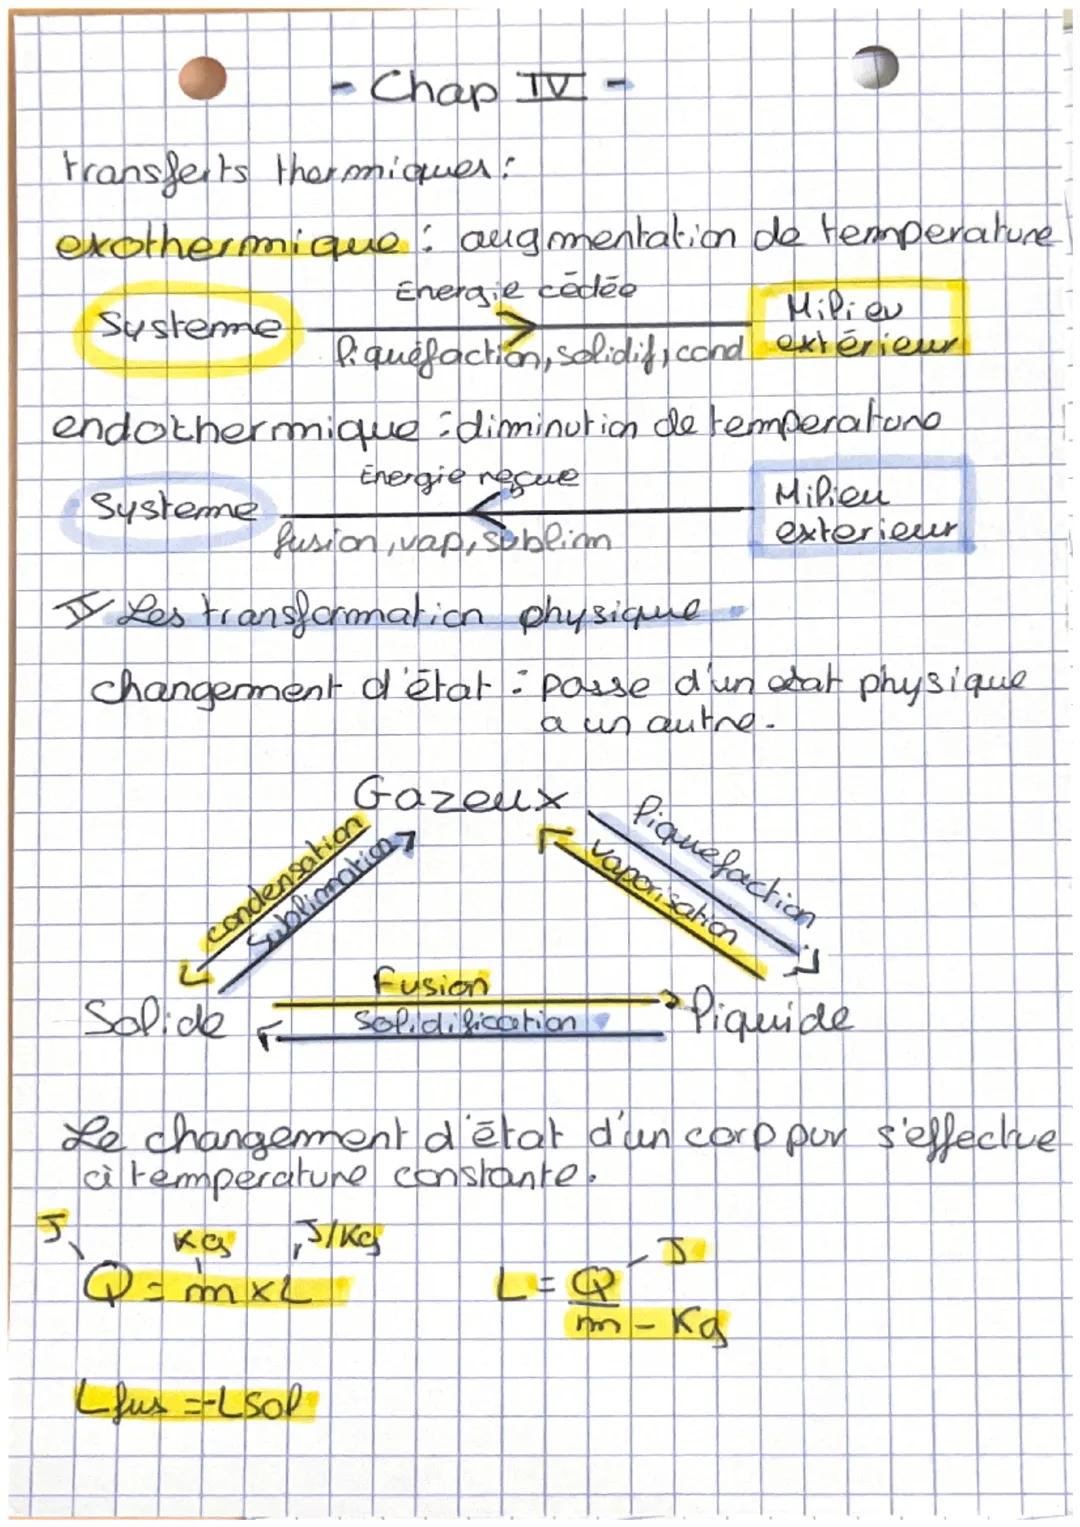 - Chap IV -
transferts thermiques :
exothermique : augmentation de temperature
Energie cédée
Systeme
Milieu
extérieur
liquéfaction, solidif, cond
endothermique : diminution de temperature
Energie reçue
Systeme
Milieu
exterieur
fusion, vap, sublim
II Les transformation physique
changement d'état : passe d'un etat physique
a un autre.
Gazeux
condensation
Sublimation
liquefaction
vaporisation
Fusion
Solide
Solidification
liquide
Le changement d'état d'un corp pur s'effectue
à temperature constante.
J
Kg
J/Kg
Q = m x L
L = Q - J
m - Kg
L fus = -L sol